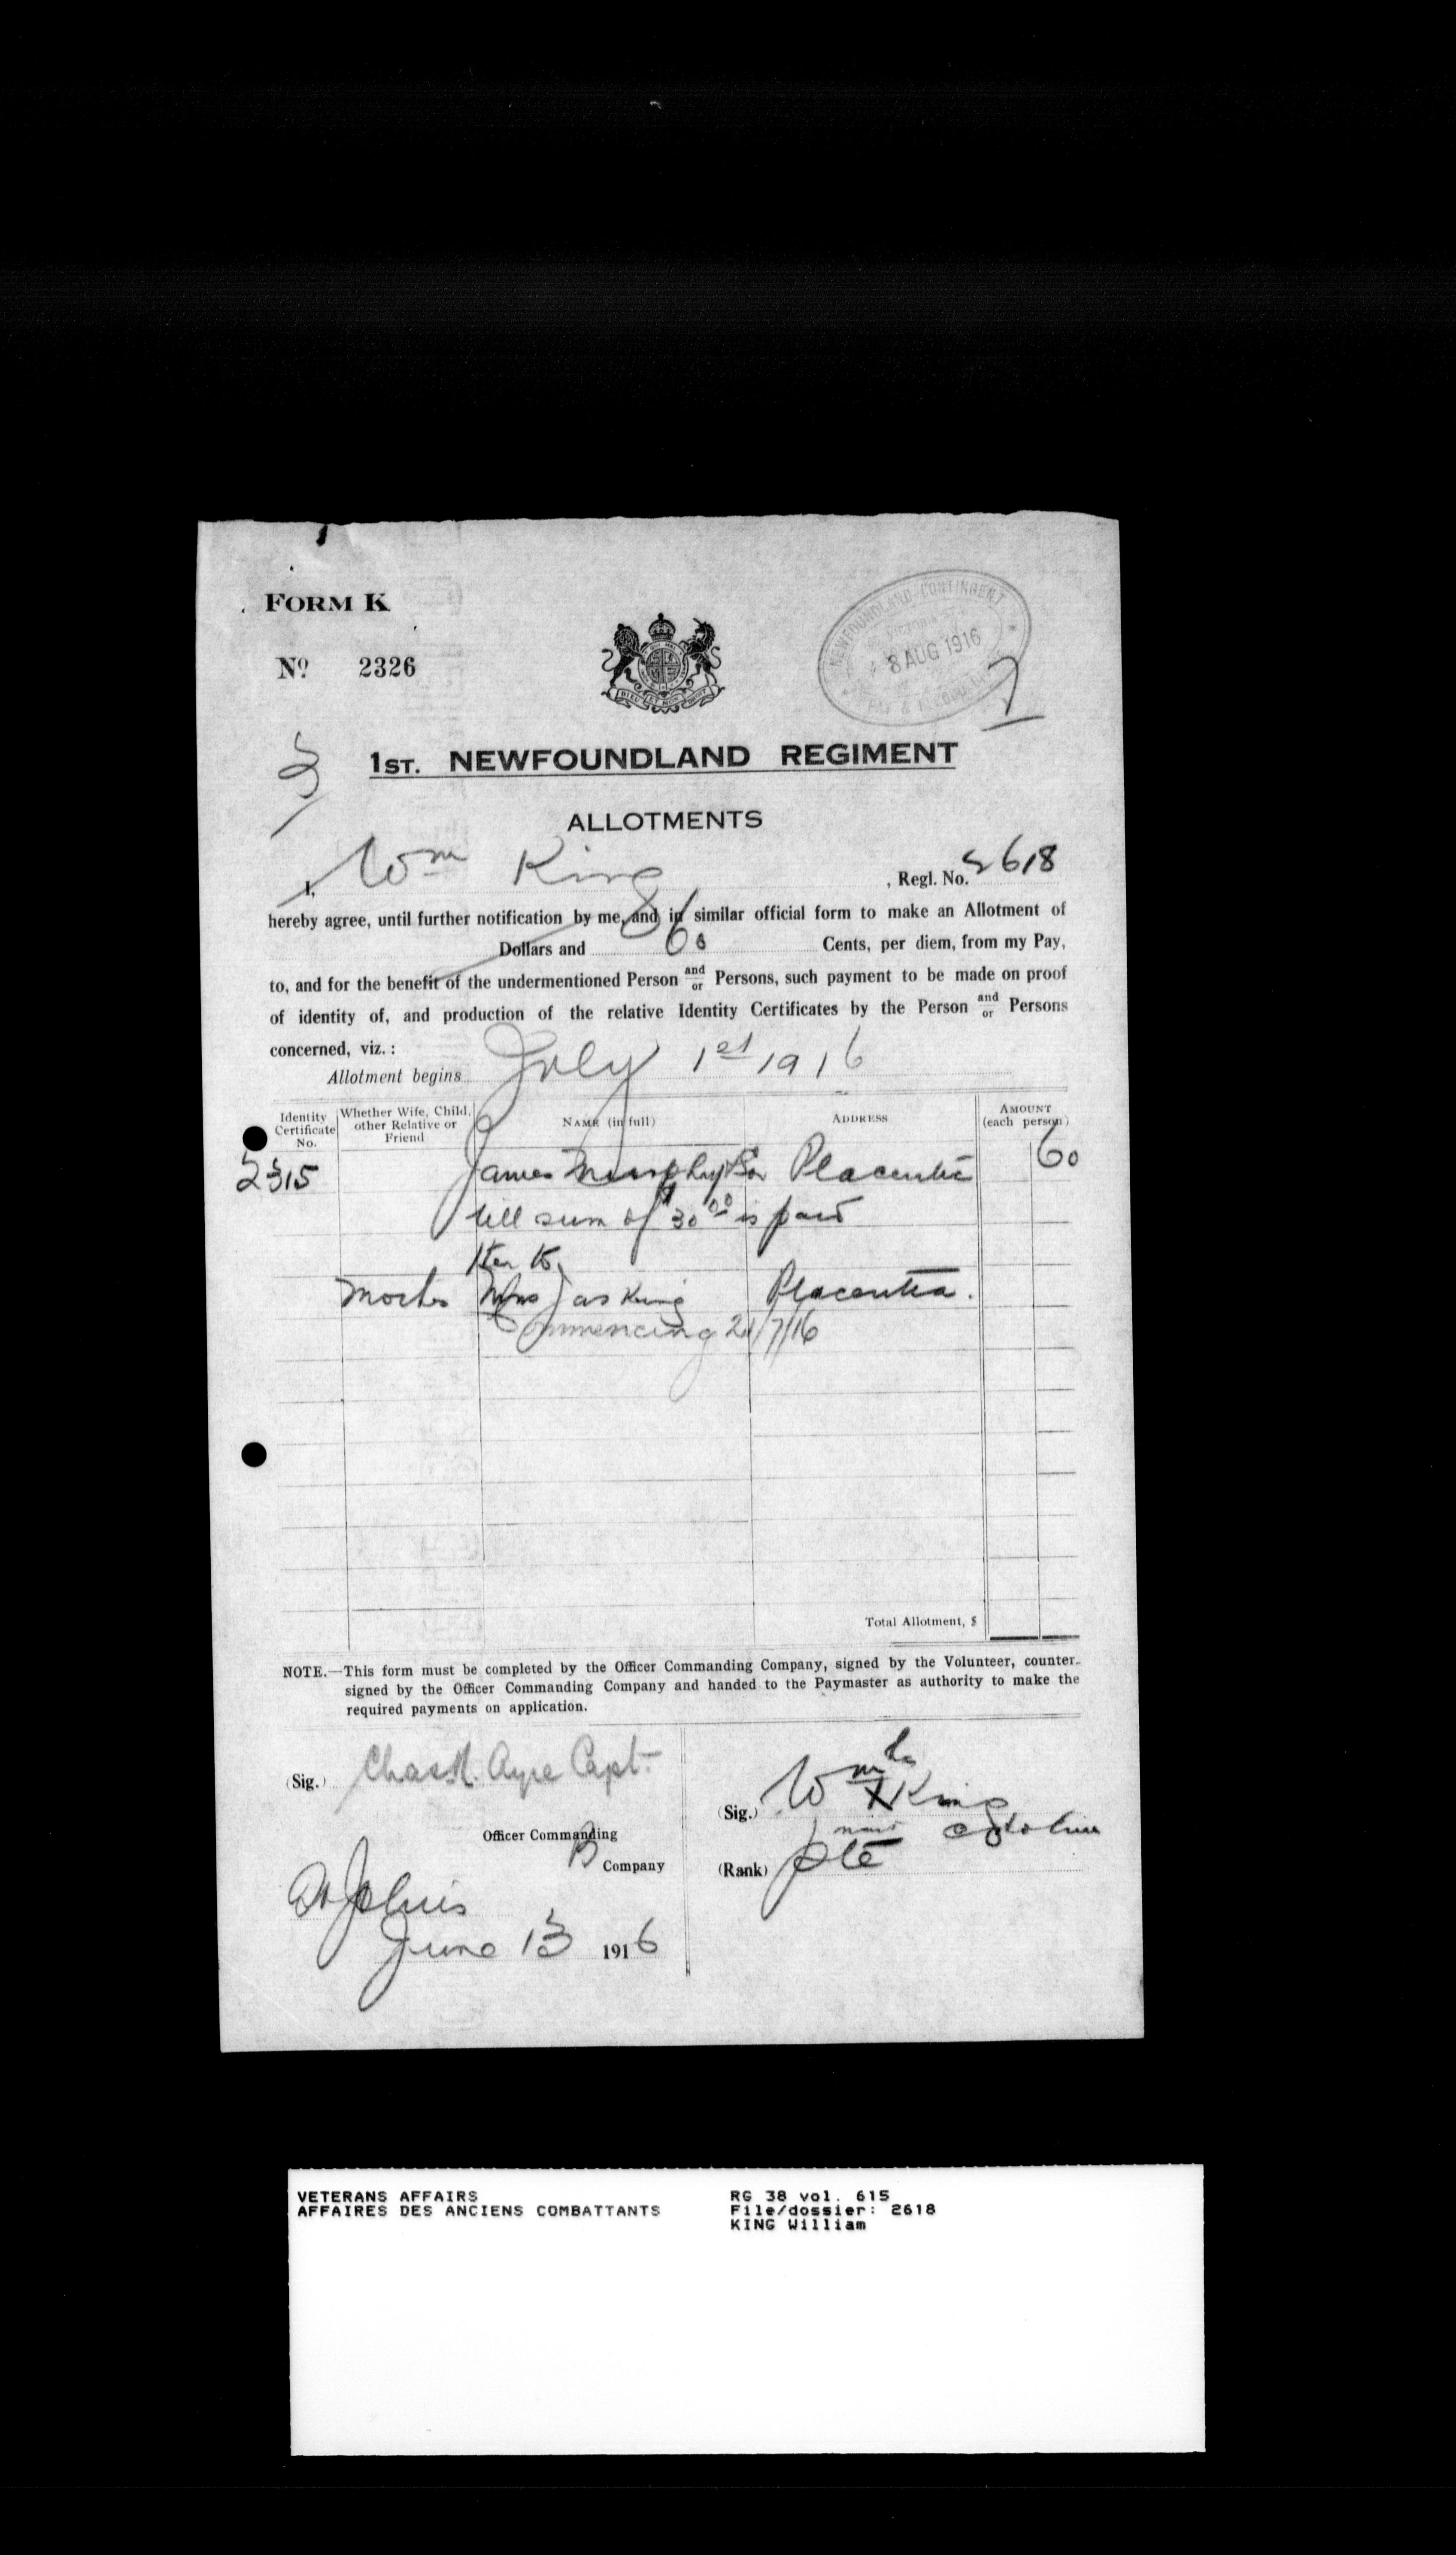 FORM K
No. 2326
NEWFOUNDLAND CONTINGENT
8 AUG 1916
PAY & RECORD
DIEU ET MON DROIT
1ST. NEWFOUNDLAND REGIMENT
ALLOTMENTS
I, Wm King, Regl. No. 2618
hereby agree, until further notification by me, and in similar official form to make an Allotment of
Dollars and 60 Cents, per diem, from my Pay,
to, and for the benefit of the undermentioned Person and/or Persons, such payment to be made on proof
of identity of, and production of the relative Identity Certificates by the Person and/or Persons
concerned, viz. :
Allotment begins July 1st 1916
Identity Certificate No. Whether Wife, Child, other Relative or Friend NAME (in full) ADDRESS AMOUNT (each person)
2315 James Murphy Placentia 60
till sum of $30.00 is paid
Mother Mrs Jas King Placentia.
Commencing 21/7/16
Total Allotment, $
NOTE.—This form must be completed by the Officer Commanding Company, signed by the Volunteer, counter-
signed by the Officer Commanding Company and handed to the Paymaster as authority to make the
required payments on application.
(Sig.) Chas. R. Ayre Capt.
Officer Commanding
B Company
St Johns
June 13 1916
(Sig.) Wm X King
(Rank) pte
VETERANS AFFAIRS
AFFAIRES DES ANCIENS COMBATTANTS
RG 38 vol. 615
File/dossier: 2618
KING William